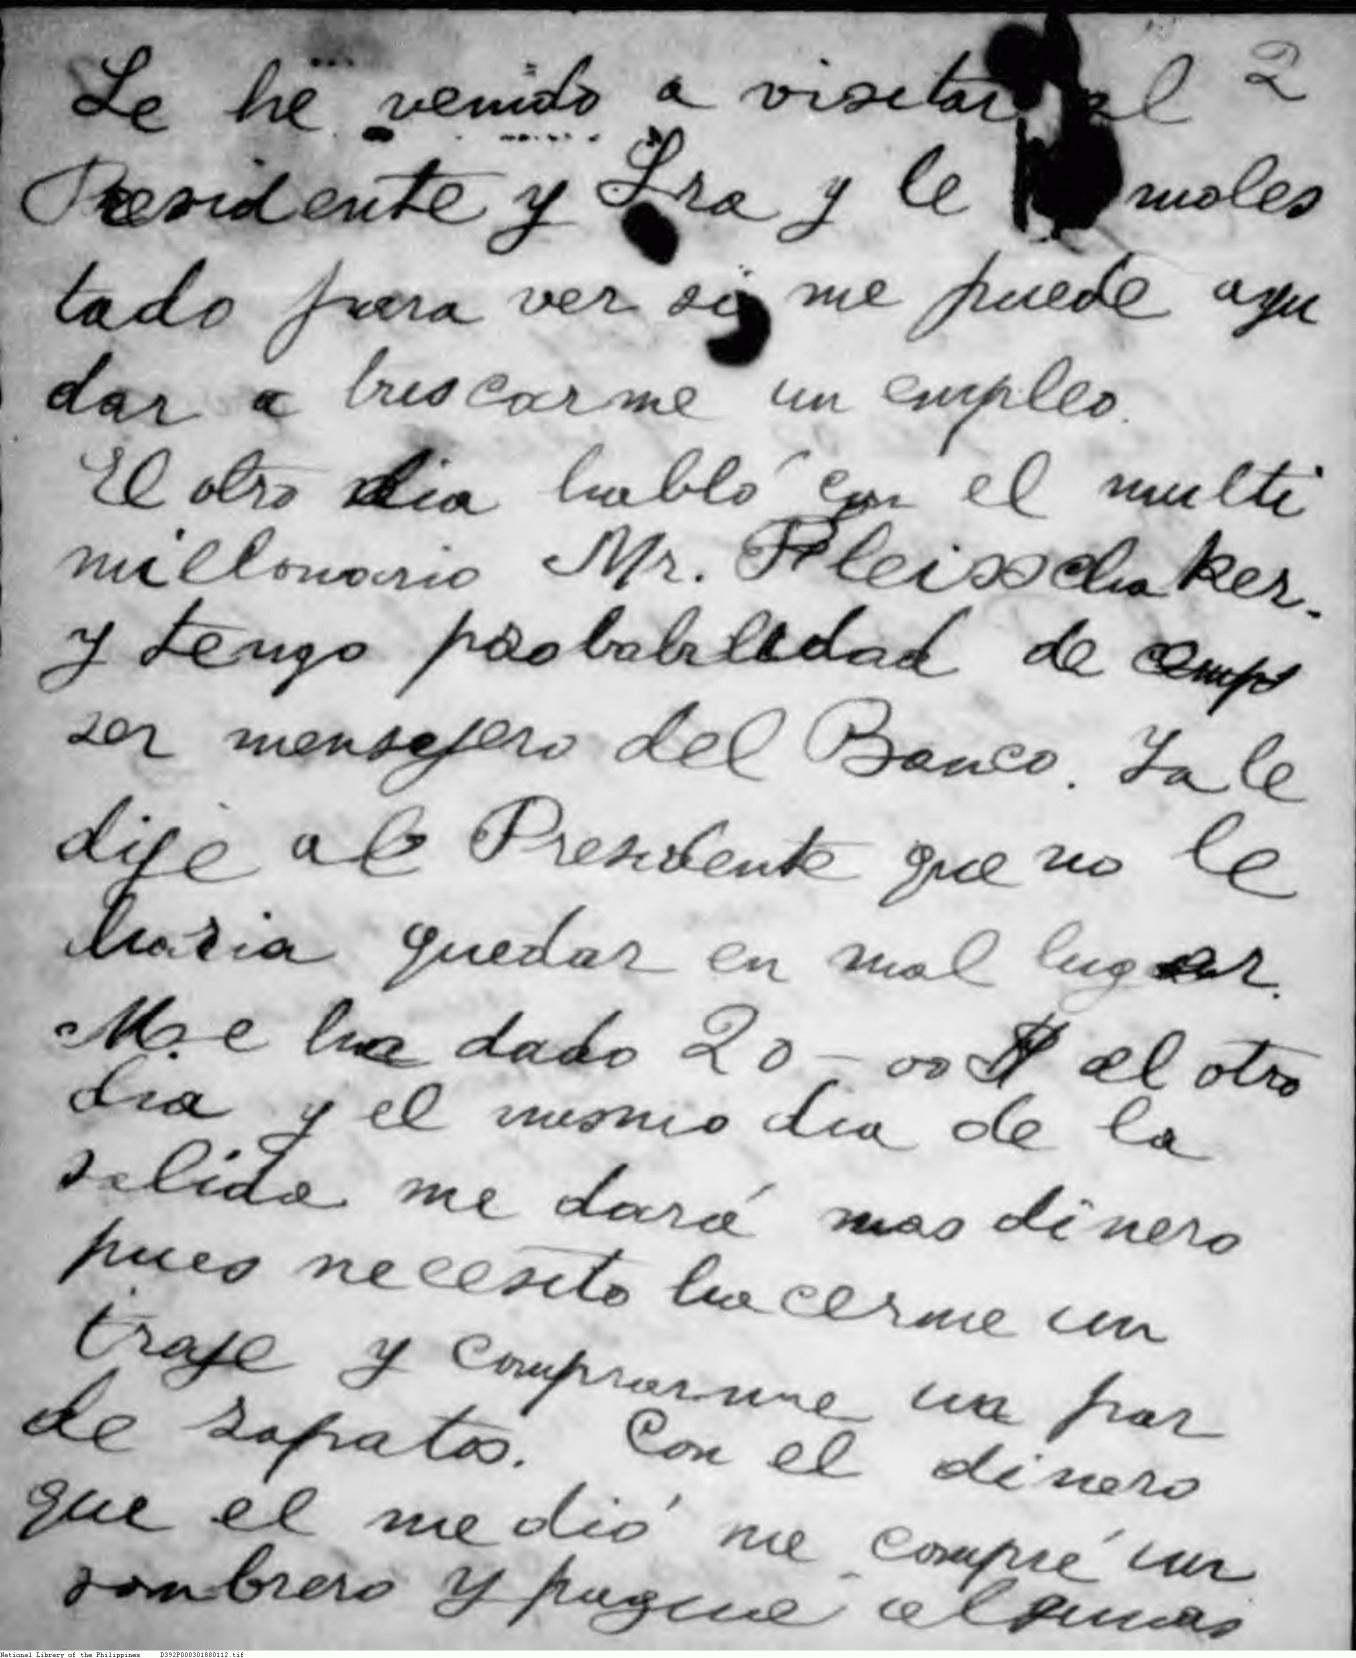 2
Le he venido a visitar al
Presidente y Sra y le moles
tado para ver si me puede ayu
dar a buscarme un empleo.
El otro dia habló con el multi
millonario Mr. Fleisschaker.
y tengo probabilidad de
ser mensajero del Banco. Ya le
dije al Presidente que no le
haria quedar en mal lugar.
Me ha dado 20-00 $ el otro
dia y el mismo dia de la
salida me dará mas dinero
pues necesito hacerme un
traje y comprarme un par
de zapatos. Con el dinero
que el me dió me compré un
sombrero y pague algunas
National Library of the Philippines D392P000301880112.tif